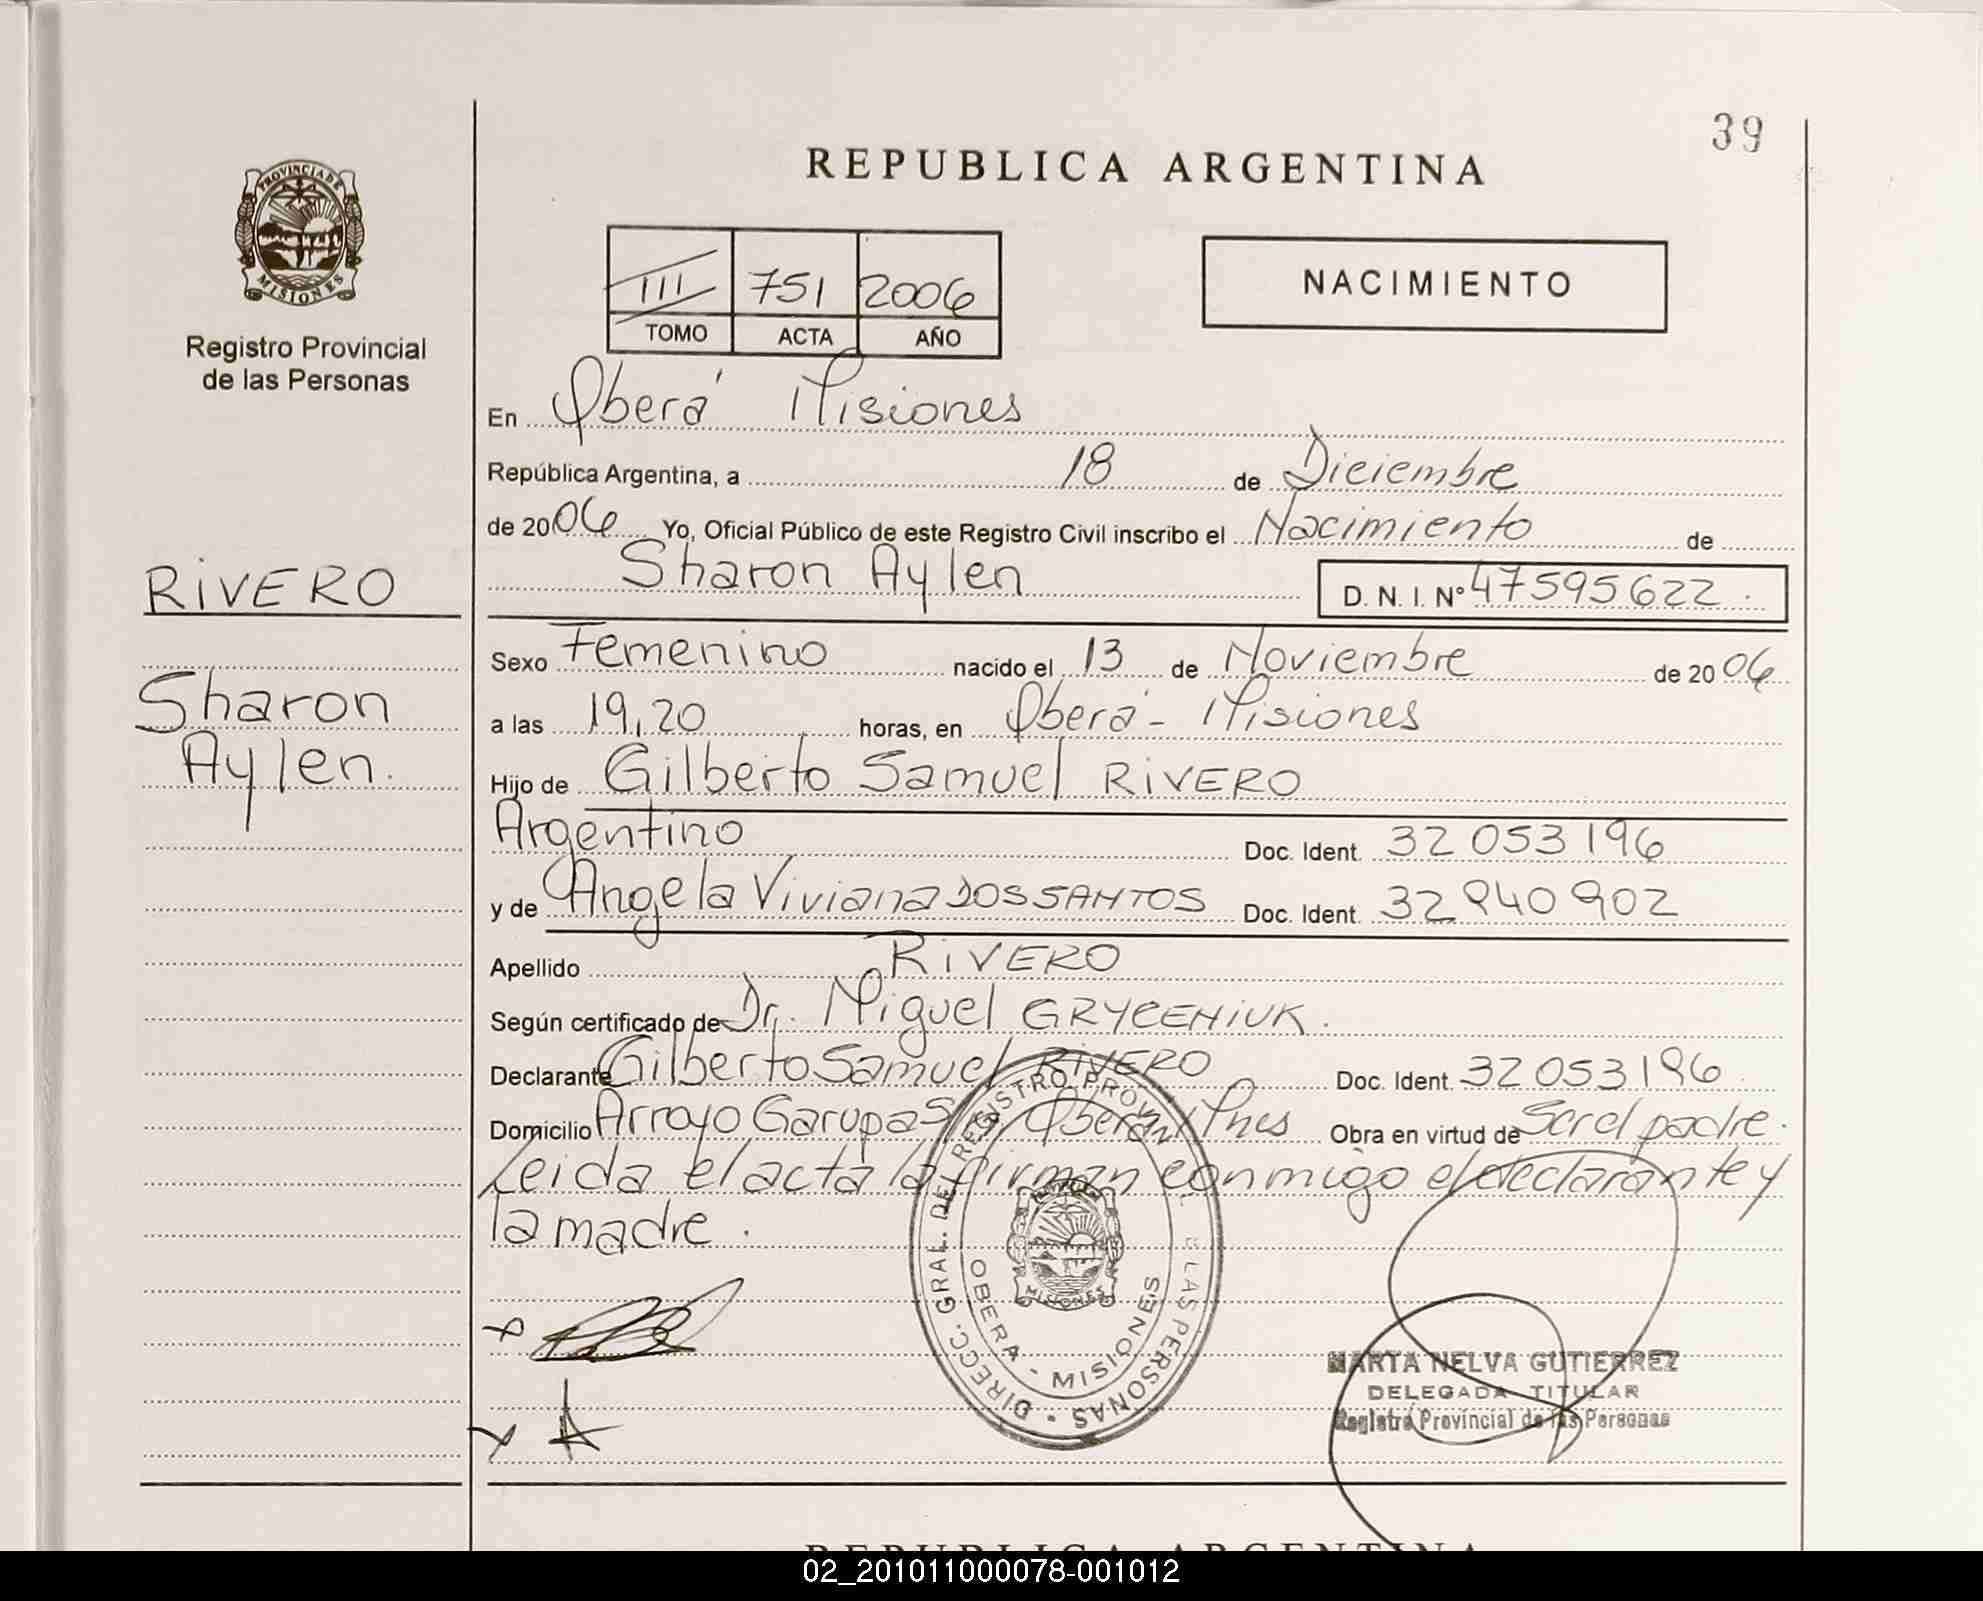 39
REPUBLICA ARGENTINA
PROVINCIA DE
MISIONES
Registro Provincial
de las Personas
III 751 2006
TOMO ACTA AÑO
NACIMIENTO
En Oberá Misiones
República Argentina, a 18 de Diciembre
de 2006 Yo, Oficial Público de este Registro Civil inscribo el Nacimiento de
Sharon Aylen D. N. I. Nº 47595622
RIVERO
Sharon
Aylen.
Sexo Femenino nacido el 13 de Noviembre de 2006
a las 19,20 horas, en Oberá - Misiones
Hijo de Gilberto Samuel RIVERO
Argentino Doc. Ident. 32 053 196
y de Angela Viviana DOS SANTOS Doc. Ident. 32 840 902
Apellido RIVERO
Según certificado de Dr. Miguel GRYCENIUK.
Declarante Gilberto Samuel RIVERO Doc. Ident. 32 053 196
Domicilio Arroyo Garupas Oberá Mnes Obra en virtud de Ser el padre.
Leida el acta la firman conmigo el declarante y
la madre.
DIRECC. GRAL. DEL REGISTRO PROV. DE LAS PERSONAS
OBERA - MISIONES
MISIONES
MARTA NELVA GUTIERREZ
DELEGADA TITULAR
Registro Provincial de las Personas
REPUBLICA ARGENTINA
02_201011000078-001012